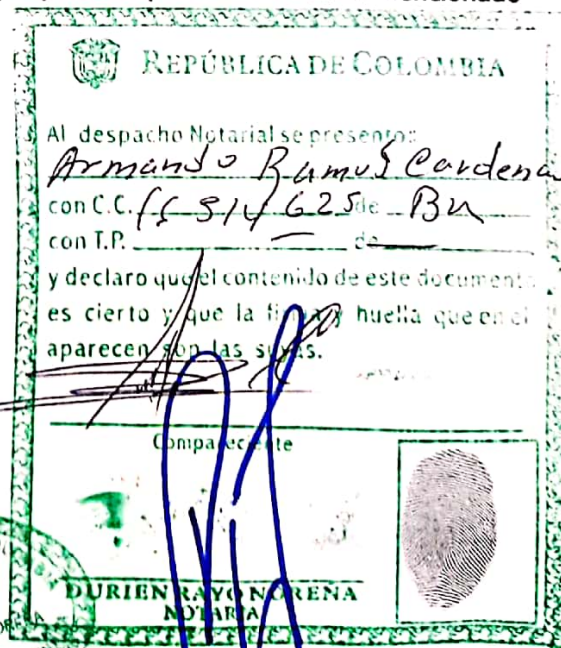 REPÚBLICA DE COLOMBIA
Al despacho Notarial se presento:
Armando Ramos Cardenas
con C.C. de Bu
con T.P. — de —
y declaro que el contenido de este documento
es cierto y que la firma y huella que en el
aparecen son las suyas.
Compareciente
DURIEN RAYO NOREÑA
NOTARIA